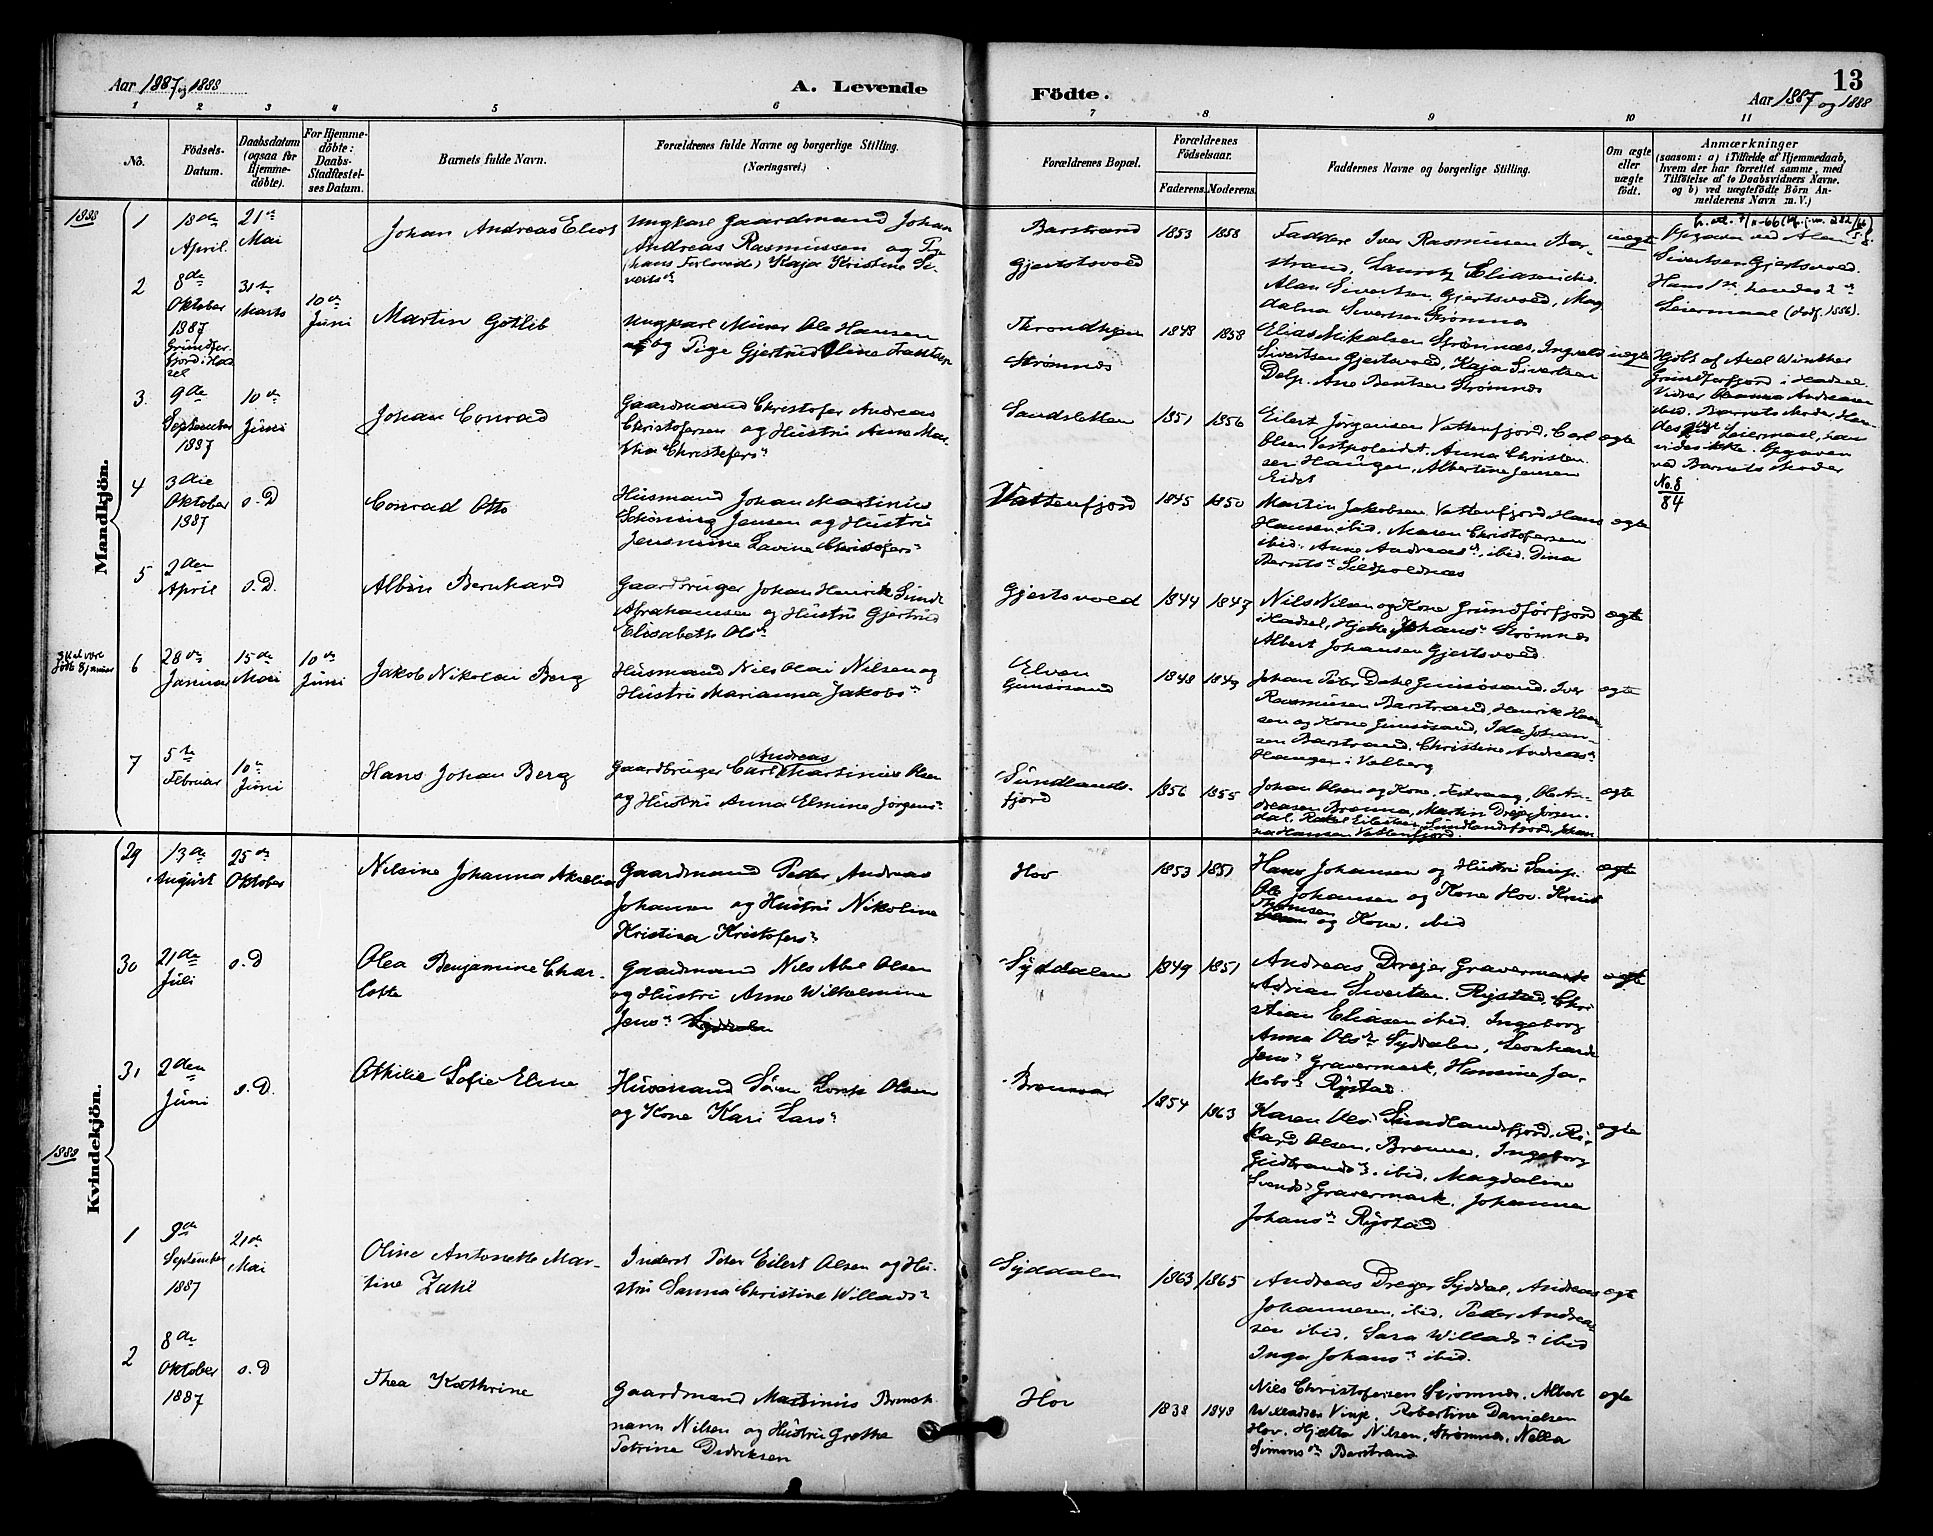 Aar 1887 og 1888
A. Levende Födte.
13
Aar 1887 og 1888
1 2 3 4 5 6 7 8 9 10 11
No.
Födsels-Datum.
Daabsdatum (ogsaa for Hjemme-döbte).
For Hjemme-döbte: Daabs-Stadfæstel-ses Datum.
Barnets fulde Navn.
Forældrenes fulde Navne og borgerlige Stilling.
(Næringsvei.)
Forældrenes Bopæl.
Forældrenes Födselsaar.
Faderens. Moderens.
Faddernes Navne og borgerlige Stilling.
Om ægte eller uægte födt.
Anmærkninger
(saasom: a) i Tilfælde af Hjemmedaab,
hvem der har forrettet samme, med
Tilföielse af to Daabsvidners Navne.
og b) ved uægtefödte Börn An-
melderens Navn m. V.)
Mandkjön.
1888
1
18de April.
21de Mai
Johan Andreas Elias
Ungkarl Gaardmand Johan
Andreas Rasmussen og Pige
(hans Forlovede) Kaja Kristine Si-
vertsdr
Barstrand
Gjertsvold
1853 1858
Faddere Iver Rasmussen Bar-
strand, Lauritz Eliasen ibid.
Alan Sivertsen Gjertsvold, Mag
dalna Sivertsen Strømnes
uægte
Opgaven ved Alan
Sivertsen Gjertsvold.
Hans 1ste hendes 2det
Leiermaal (dødf. 1886).
2
8de Oktober 1887
Grundfør-
fjord i Had
sel
31te Marts
10de Juni
Martin Gotlib
Ungkarl Murer Ole Hansen
og Pige Gjertrud Oline Frantsen
Throndhjem
Strømnes
1848 1858
Elias Mikalsen Strømnes, Ingvald
Sivertsen Gjertsvold, Kaja Sivertsen
Delp. Ane Berntsen Strømnes
uægte
Hjdbt af Axel Winther
Grundførfjord i Hadsel.
Vidner Hanna Andreasen
ibid. Barnets Moder Hen
des 2det Leiermaal, han
vides ikke. Opgaven
ved Barnets Moder
No. 8
84
3.
9de September 1887
10de Juni
Johan Conrad
Gaardmand Christofer Andreas
Christofersen og Hustru Anne Mar-
tha Christofersdr
Sandsletten
1851 1856
Eilert Jörgensen Vattenfjord. Carl
Olsen Vestpoleidet. Anna Christen
sen Haugen, Albertine Jensen
Eidet
ægte
4
3die Oktober 1887
s. D
Conrad Otto
Husmand Johan Martinus
Schönning Jensen og Hustru
Jensmine Lavine Christofersdr
Vattenfjord
1845 1850
Martin Jakobsen Vattenfjord, Hans
Hansen, ibid. Maren Christofersen
ibid. Anne Andreasdr ibid. Dina
Berntsdr Sildpoldnæs
ægte
5
2den April
s. D.
Albin Bernhard
Gaardbruger Johan Henrik Sund
Abrahamsen og Hustru Gjertrud
Elisabeth Olsdr
Gjertsvold
1844 1847
Nils Nilsen og Kone Grundførfjord
i Hadsel, Hjetta Johansdr Strømnes
Albert Johansen Gjertsvold.
ægte
Skal være
födt 8 Januar
6
28de Januar
15de Mai
10de Juni
Jakob Nikolai Berg
Husmand Nils Olai Nilsen og
Hustru Marianna Jakobsdr
Elven
Gimsösand
1848 1849
Johan Peter Dahl Gimsösand. Iver
Rasmussen Barstrand, Henrik Han
sen og Kone Gimsösand, Ida Johan-
sen Barstrand. Christine Andreasdr
Haugen i Valberg
ægte
7
5te Februar
10de Juni
Hans Johan Berg
Gaardbruger Carl Andreas Martinius Olsen
og Hustru Anna Elmine Jörgensdr
Sundlands-
fjord
1856 1855
Johan Olsen og Kone, Festvaag, Ole An-
dreasen Brenna, Martin Dreyer Jörgen
dal, Rakel Eilertsen Sundlandsfjord. Johan
na Hansen Vattenfjord.
ægte
Kvindekjön.
29
13de August
25de Oktober
Nilsine Johanna Akselia
Gaardmand Peder Andreas
Johansen og Hustru Nikoline
Kristina Kristofersdr
Hov
1853 1851
Hans Johansen og Hustru Saup.
Ole Johansen og Kone Hov. Knut
Thomsen og Kone. ibid
ægte
30
21de Juli
s. D
Olea Benjamine Char-
lotte
Gaardmand Nils Abel Olsen
og Hustru Anne Wilhelmine
Jensdr Syddalen
Syddalen
1849 1851
Andreas Dreyer Gravermark
Adrian Sivertsen. Rystad, Chri
stian Eliasen ibid. Ingeborg
Anna Olsdr Syddalen, Leonharde
Jensdr Gravermark, Hansine Ja-
kobsdr Rystad
ægte
31
2den Juni
s. D.
Othilie Sofie Eline
Husmand Sören Lorch Olsen
og Kone Kari Larsdr
Brenna
1854 1863
Karen Olsdr Sundlandsfjord. Ri-
kard Olsen, Brenna. Ingeborg
Gudbrandsdr. ibid, Magdaline
Svendsdr Gravermark. Johanna
Johansdr Rystad
ægte
1888
1
9de September 1887
21de Mai
Oline Antonette Mar-
tine Zahl
Inderst Peter Eilert Olsen og Hu-
stru Sanna Christine Willadsdr
Syddalen
1863 1865
Andreas Dreyer Syddal, Andreas
Johannesen, ibid. Peder Andrea
sen ibid, Sara Willadsdr ibid
Inga Johansdr ibid.
ægte
2
8de Oktober 1887
s. D
Thea Kathrine
Gaardmand Martinus Brinch
mann Nilsen og Hustru Grethe
Petrine Didriksen
Hov
1838 1848
Nils Christofersen Strømnes. Albert
Willadsen Vinje. Robertine Danielsen
Hov. Hjetta Nilsen, Strømnes, Nella
Simonsdr Barstrand
ægte